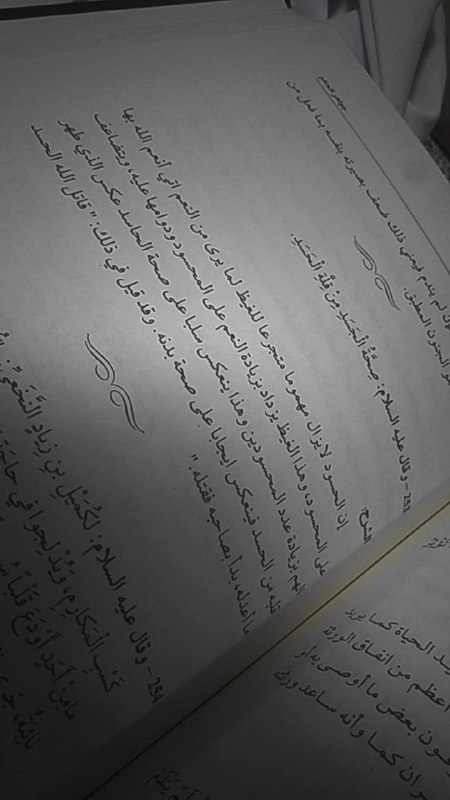 لم يندم فيعني ذلك ضعف بصيرته بنفسه بما فعل من
الجنون المطبق.
251 - وقال عليه السلام: صِحَّةُ الْجَسَدِ مِنْ قِلَّةِ الْحَسَدِ.
الشرح:
إن الحسود لا يزال مهموما متجرعا للغيظ لما يرى من النعم اتي أنعم الله بها
على المحسود، وهذا الغيظ يزداد بزيادة النعم على المحسود ودوامها عليه، ويتضاعف
الهم بزيادة عدد المحسودين وهذا ينعكس سلبا على صحة الحاسد عكس الذي طهر
قلبه من الحسد فينعكس ايجابا على صحة بدنه. وقد قيل في ذلك: "قاتل الله الحسد
ما أعدله، بدأ بصاحبه فقتله."
وقال عليه السلام: لِكُمَيْلِ بْنِ زِيادِ النَّخَعِيِّ:
كَسْبِ الْمَكارِمِ، وَيُدْلِجوا في حاجَةِ
ما مِنْ أَحَدٍ أَوْدَعَ قَلْباً
نائِبَةٌ، جَرى
الحياة كما يريد
اعظم من انفاق الورثة
بعض ما أوصى به أو
كما وأنه ساعد ورثته